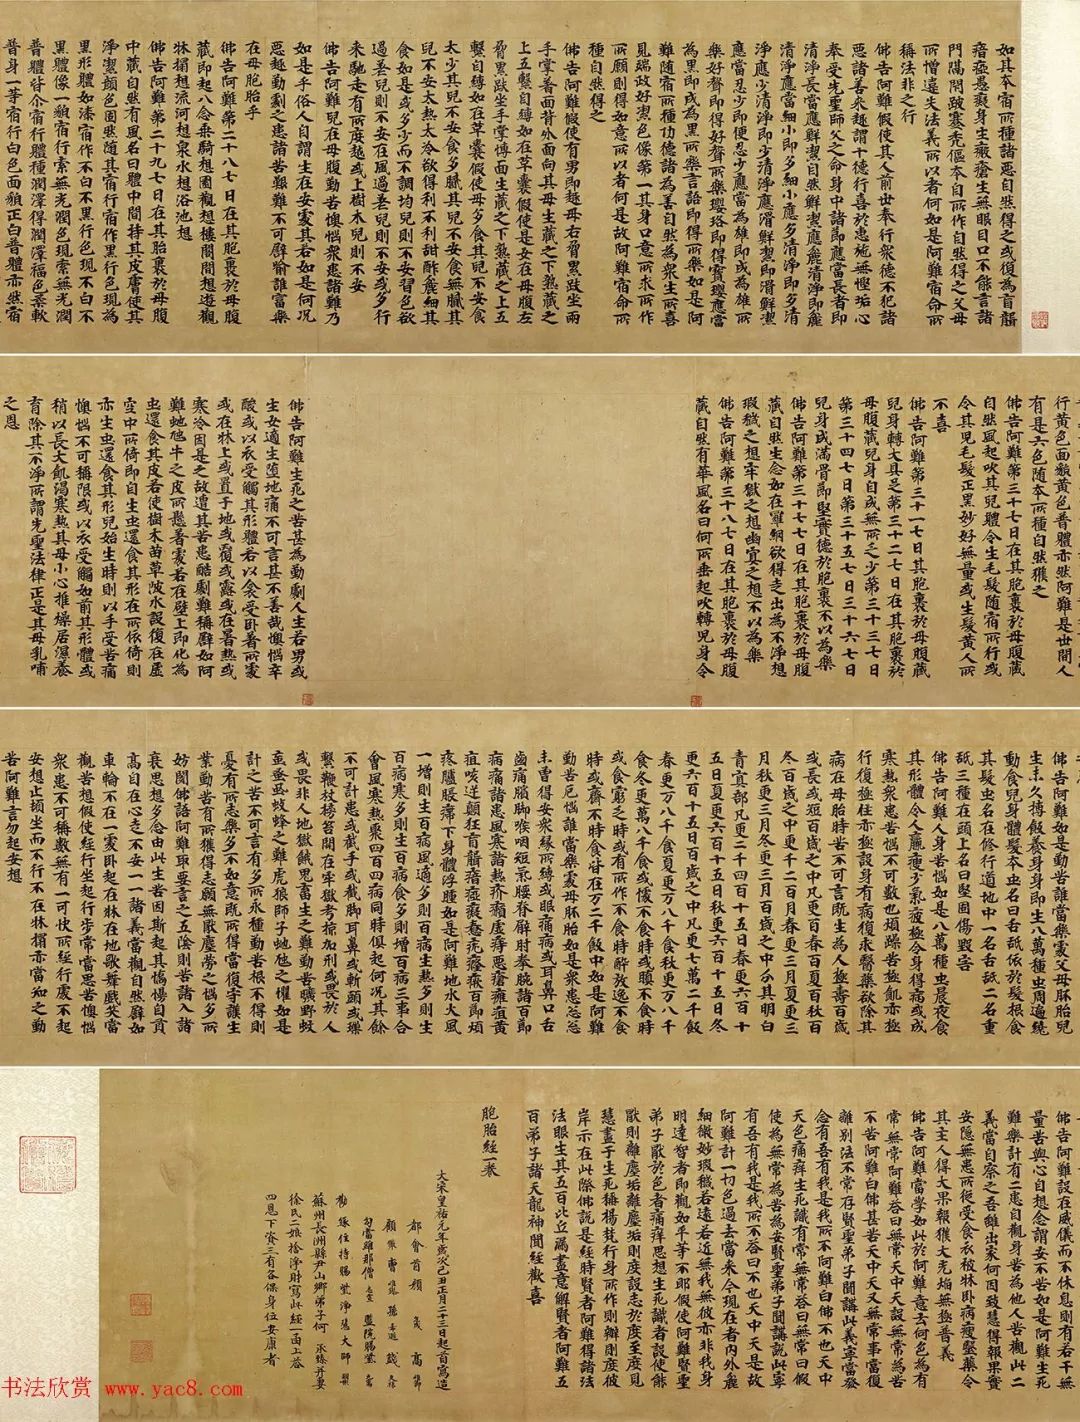 如其本宿所種諸惡自然得之或復為盲聾
瘖瘂愚癡身生瘢瘡生無眼目口不能言諸
門隔閉跛蹇禿傴本自所作自然得之父母
所憎違失法義所以者何如是阿難宿命所
稱法非之行
佛告阿難假使其人前世奉行衆德不犯諸
惡諸善來趣謂十德行喜於惠施無慳垢心
奉受先聖師父之命身中諸節應當長者即
清淨長當應鮮潔自然鮮潔應麁清淨即麁
清淨應當細小即多細小應多清淨即多清
淨應少清淨即少清淨應滑鮮潔即滑鮮潔
應當忍少即便忍少應當為雄即或為雄所
樂好聲即得好聲所樂瓔珞即得寶瓔應當
為黑即或為黑所樂言語即得所樂如是阿
難隨宿所種功德諸為善自然為衆生所喜
見端政好潔色像第一其身口意所求所作
所願則得如意所以者何是故阿難宿命所
種自然得之
佛告阿難假使有男即趣母右脅累趺坐兩
手掌著面背外面向其母生藏之下熟藏之
上五繫自縛如在革囊假使是女在母腹左
脅累趺坐手掌博面生藏之下熟藏之上五
繫自縛如在革囊假使母多食其兒不安食
太少其兒不安食多膩其兒不安食無膩其
兒不安太熱太冷欲得利不利甜酢麁細其
食如是或多少而不調均兒則不安習色欲
過差兒則不安在風過差兒則不安或多行
來馳走有所度越或上樹木兒則不安
佛告阿難兒在母腹勤苦懊惱衆患諸難乃
如是乎俗人自謂生在安處其若如是何況
惡趣勤劇之患諸苦艱難不可譬喻誰當樂
在母胞胎乎
佛告阿難第二十八七日在其胞裹於母腹
藏即起八念乘騎想園觀想樓閣間想遊觀
牀榻想流河想泉水想浴池想
佛告阿難第二十九七日在其胎裹於母腹
中藏自然有風名曰體中間持其皮膚使其
淨潔顏色固然隨其宿行宿作黑行色現為
黑形體如漆宿作不白不黑行色現不白不
黑體像一類宿行素無光潤色現素無光潤
普體皆介宿行體種潤澤得潤澤福色柔軟
普身一等宿行白色面類正白普體亦然宿
行黃色面類黃色普體亦然阿難是世間人
有是六色隨本所種自然獲之
佛告阿難第三十七日在其胞裹於母腹藏
自然風起吹其兒體令生毛髮隨宿所行或
令其兒毛髮正黑妙好無量或生髮黃人所
不喜
佛告阿難第三十一七日其胞裹於母腹藏
兒身轉大具足第三十二七日在其胞裹於
母腹藏兒身自或無所乏少第三十三七日
第三十四七日第三十五七日三十六七日
兒身成滿骨節堅實德於胞裹不以為樂
佛告阿難第三十七七日在其胞裹於母腹
藏自然生念如在羅網欲得走出為不淨想
瑕穢之想牢獄之想幽冥之想不以為樂
佛告阿難第三十八七日在其胞裹於母腹
藏自然有華風名曰何所垂起吹轉兒身令
佛告阿難生死之苦甚為勤劇人生若男或
生女適生墮地痛不可言甚不善哉懊惱辛
酸或以衣受觸其形體若以衾受卧著所處
或在牀上或置于地或覆或露或在暑熱或
寒冷因是之故遭其苦患酷劇難稱譬如阿
難蚖虺牛之皮所懸著處若在壁上即化為
虫還食其皮若使樹木苗草陂水設復在虛
空中所倚即自生虫還食其形在所依倚則
亦生虫還食其形兒始生時則以手受苦痛
懊惱不可稱限或以衣受觸如前其形體或
稍以長大飢渴寒熱其母小心推燥居濕養
育除其不淨所謂先聖法律正是其母乳哺
之恩
佛告阿難如是勤苦誰當樂處父母胚胎兒
生未久搏飯養身身即生八萬種虫周遍繞
動食兒身體髮本虫名曰舌舐依於髮根食
其髮虫名在修行道地中一名舌舐二名重
舐三種在頭上名曰堅固傷毀害
佛告阿難人身苦惱如是八萬種虫晨夜食
其形體令人羸瘦少氣疲極令身得病或成
寒熱衆患苦惱不可數也煩躁苦極飢亦極
行復極住亦極設身有病復求醫藥欲除其
病在母胎時苦不可言既生為人極壽百歲
或長或短百歲之中凡更百春百夏百秋百
冬百歲之中更千二百月春更三月夏更三
月秋更三月冬更三月百歲之中分其明白
青冥部凡更二千四百十五日春更六百十
五日夏更六百十五日秋更六百十五日冬
更六百十五日百歲之中凡更七萬二千飯
春更万八千食夏更万八千食秋更万八千
食冬更萬八千食或懅不食時或瞋不食時
或食窮乏之時或有所作不食時醉放逸不食
時或齋不時食甘在万二千飯中如是阿難
勤苦厄惱誰當樂處母胚胎如是衆患忩忩
未曾得安衆緣所縛或眼痛病或耳鼻口舌
齒痛膭脚喉咽短氣腰脊臂肘拳腕諸百節
病痛諸患風寒諸熱疥癩虛痔惡瘡癰疽黃
疸咳逆顛狂盲聾瘖瘂癡惷疣痤疾百節煩
疼臚脹滯下身體浮腫如是阿難地水火風
一增則生百病風適多則百病生熱多則生
百病寒多則生百病食多則增百病三事合
會風寒熱聚四百四病同時俱起何況其餘
不可計患或截手或截脚耳鼻或斬頭或璅
繫鞭杖榜笞閉在牢獄考掠加刑或畏於人
或畏非人地獄餓鬼畜生之難勤苦曠野蚊
䖟蚤虱蚊蜂之難虎狼師子蚖虺之懼如是
計之苦不可言有多所永種動苦根不得則
憂有所志樂多不如意既所得當復守護生
業勤苦有所獲得志願無厭塵勞之惱多所
妨閡佛語阿難取要言之五陰則苦諸入諸
衰思想多念由此生苦因斯起其憍慢自貢
高自在心走不安一一諸義當觀自然譬如
車輪不在一處卧起在牀在地歌舞戲笑當
觀苦想假使經行坐起行步常當思苦懊惱
衆患不可稱數無有一可忕所經行處不起
安想止頓坐而不行不在牀榻亦當知之勤
苦阿難言勿起安想
佛告阿難一一設在威儀而不休息則有若干無
量苦與心自想念謂安不苦如是阿難則有二
難樂計有二患自觀身苦為他人苦觀此二
義當自察之吾雖出家何因致慧得報果實
安隱無患所從受食衣被牀卧病瘦醫藥令
其主人得大果報獲大光焰無極普義
佛告阿難當學如此於阿難意云何色為有
常無常阿難荅曰無常天中天設無常為苦
不苦阿難白佛甚苦天中天又無常事當復
離別法不常存賢聖弟子聞講此義寧當發
念有吾有我是我所不阿難白佛不也天中
天色痛痒生死識有常無常荅曰無常曰假
使為無常為苦為安賢聖弟子聞講說此寧
有吾有我是我所不荅曰不也天中天是故
阿難計一切色過去當來今現在者內外麁
細微妙瑕穢若遠若近無我無彼亦非我身
明達智者即觀如平等不耶假使阿難賢聖
弟子厭於色者痛痒思想生死識者設使能
厭則離塵垢離塵垢則度設志於度至度見
慧盡于生死稱揚梵行所作則辦度於
岸示在此際佛說是經時賢者阿難得諸法
法眼生其五百比丘漏盡意解賢者阿難五
百弟子諸天龍神聞經歡喜
胞胎經一卷
大宋皇祐元年歲次己丑正月二十三日起首寫造
都會首頴
勾當雜那僧
勸緣住持賜紫淨慧大師
蘇州長洲縣尹山鄉弟子何承臻并妻
徐氏二娘捨淨財寫此經一函上荅
四恩下資三有各保身位安康者
书法欣赏 www.yac8.com